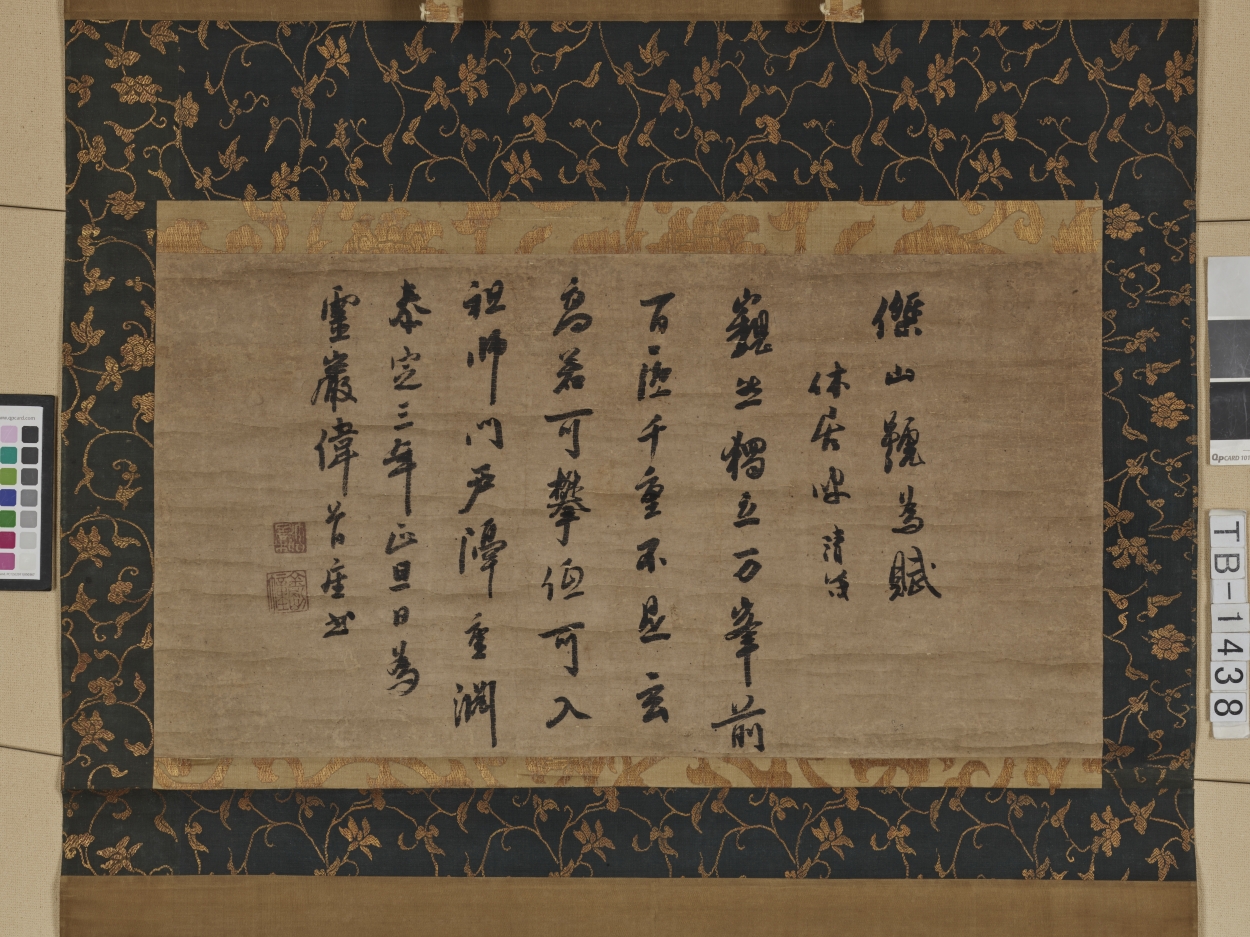 傑山號為賦
休居叟 清茂
巍然獨立万峯前
百匝千重不是玄
高若可攀低可入
祖師門戶隔重淵
泰定三年正旦日為
靈巖偉首座書
QPCARD 101
TB-1438